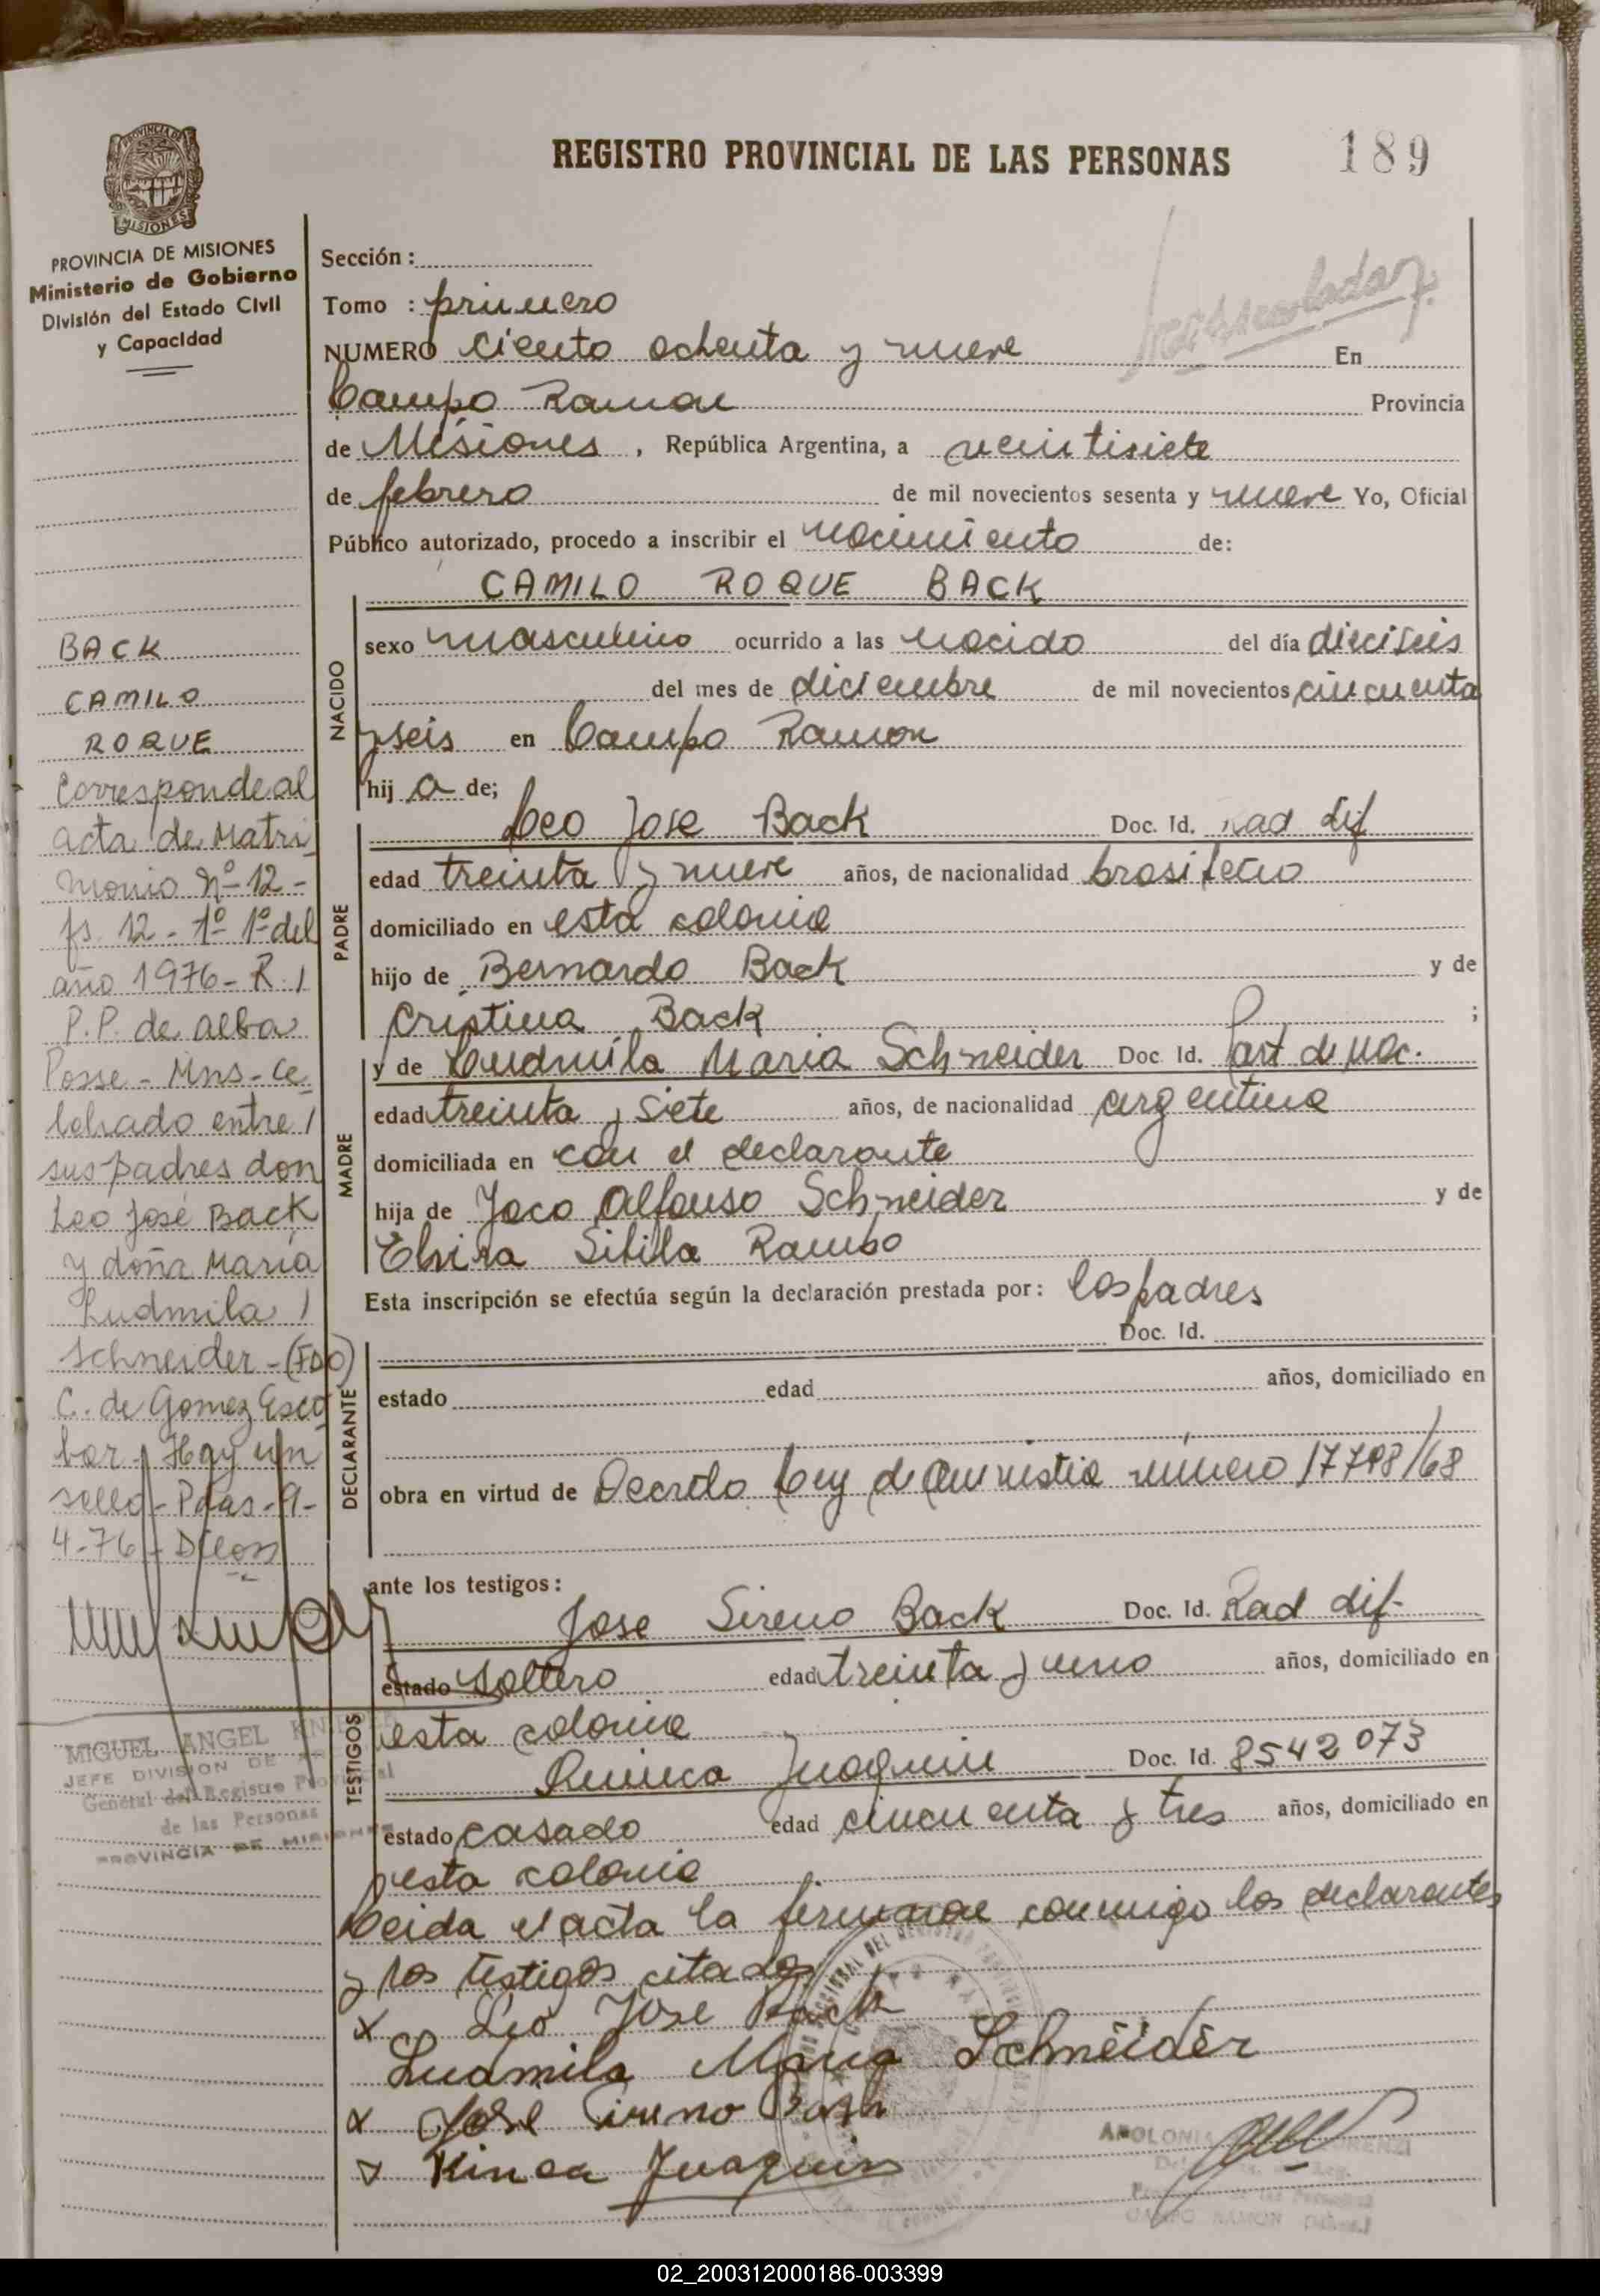 REGISTRO PROVINCIAL DE LAS PERSONAS
189
PROVINCIA DE MISIONES
PROVINCIA DE MISIONES
Ministerio de Gobierno
División del Estado Civil
y Capacidad
BACK
CAMILO
ROQUE
Corresponde al
acta de Matri
monio Nº 12 -
fs. 12 - Tº 1º del
año 1976 - R. /
P.P. de alba
Posse - Mns - Ce
lebrado entre /
sus padres don
Leo José Back
y doña María
Ludmila /
Schneider - (FDO)
C. de Gomez Esco
bar - Hay un
sello - Pdas - 9 -
4 - 76 -
MIGUEL ANGEL
JEFE DIVISION DE
General del Registro Provincial
de las Personas
PROVINCIA DE MISIONES
Sección :
Tomo : primero
NUMERO ciento ochenta y nueve En
Campo Ramon Provincia
de Misiones , República Argentina, a veintisiete
de febrero de mil novecientos sesenta y nueve Yo, Oficial
Público autorizado, procedo a inscribir el nacimiento de:
CAMILO ROQUE BACK
NACIDO
sexo masculino ocurrido a las nacido del día dieciseis
del mes de diciembre de mil novecientos cincuenta
y seis en Campo Ramon
hij o de;
PADRE
Leo Jose Back Doc. Id. Rad dif
edad treinta y nueve años, de nacionalidad brasileño
domiciliado en esta colonia
hijo de Bernardo Back y de
Cristina Back ;
MADRE
y de Ludmila Maria Schneider Doc. Id. Part de nac.
edad treinta y siete años, de nacionalidad argentina
domiciliada en con el declarante
hija de Joco Alfonso Schneider y de
Elvira Sibilla Rambo
Esta inscripción se efectúa según la declaración prestada por: los padres
Doc. Id.
DECLARANTE
estado edad años, domiciliado en
obra en virtud de Decreto Ley de Amnistia número 17798/68
ante los testigos :
TESTIGOS
Jose Sireno Back Doc. Id. Rad dif-
estado soltero edad treinta y uno años, domiciliado en
esta colonia
Juaquin Doc. Id. 8542073
estado casado edad cincuenta y tres años, domiciliado en
esta colonia
Leida el acta la firmaron conmigo los declarantes
y los testigos citados
x Leo Jose Back
Ludmila Maria Schneider
x Jose Cireno Back
x Kinca Juaquin
APOLONIA
CAMPO RAMON
02_200312000186-003399